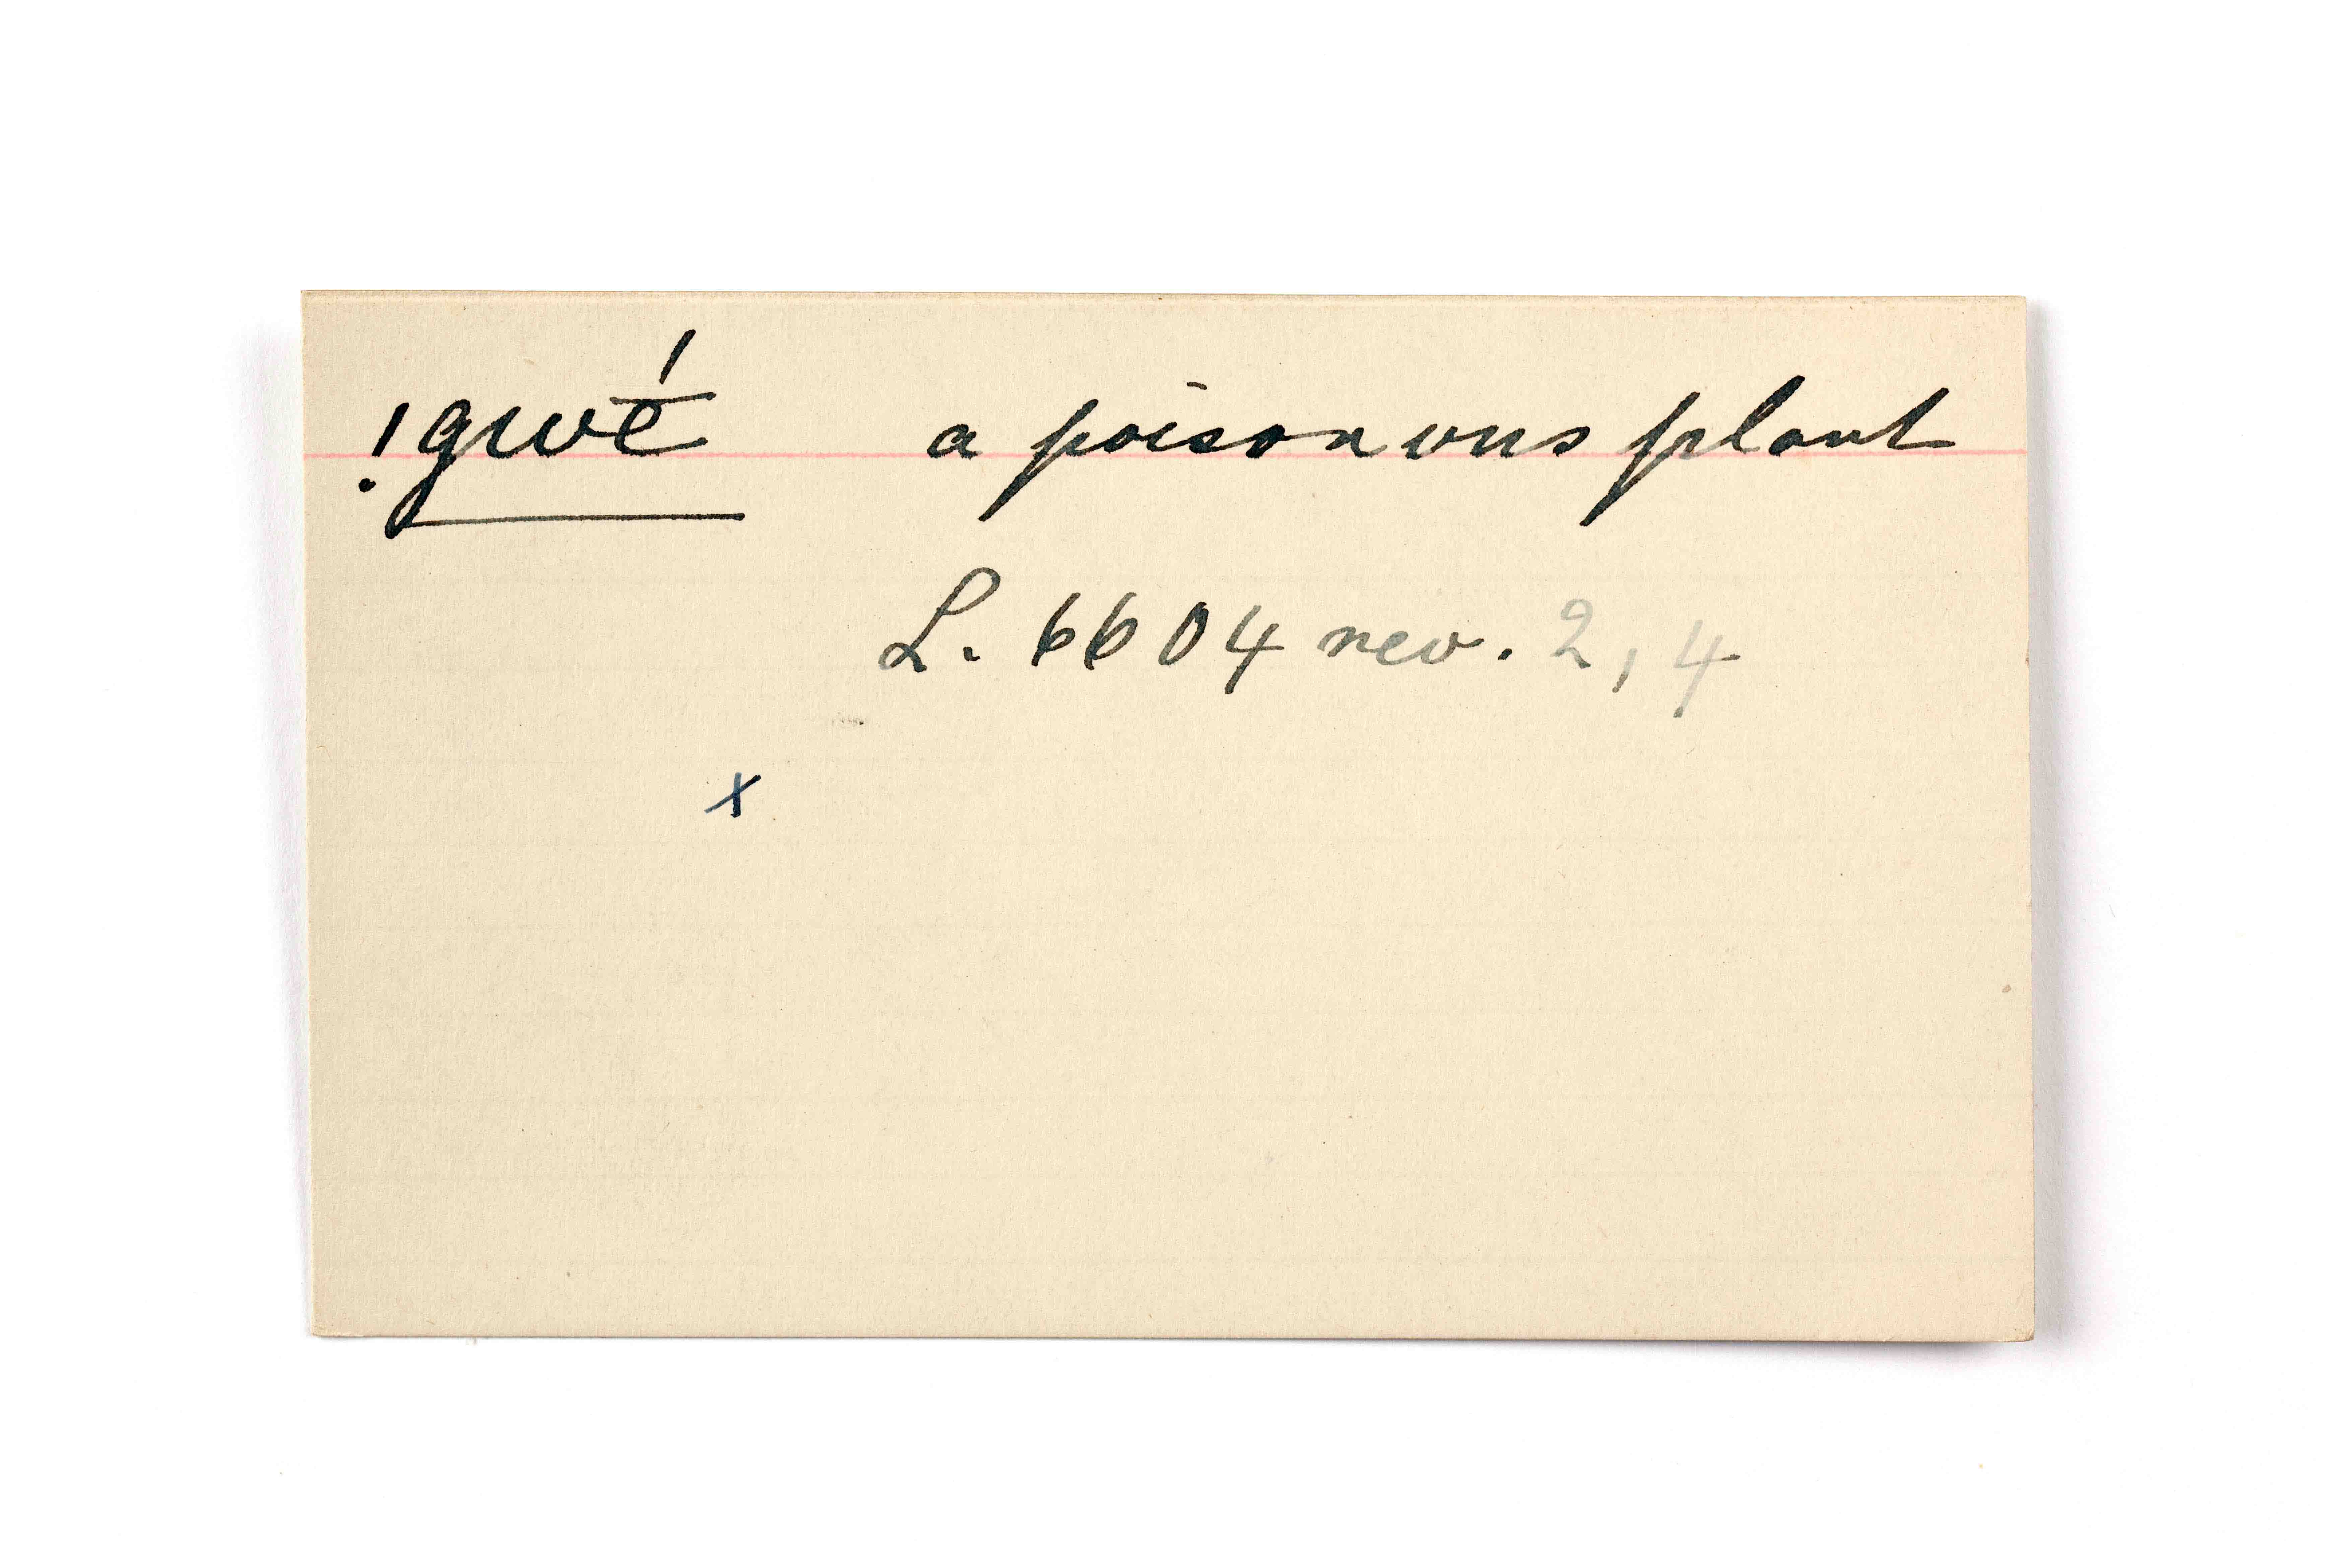 !gwḗ a poisonous plant
L. 6604 rev. 2, 4
x